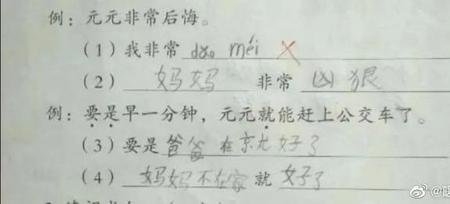 例：元元非常后悔。
（1）我非常 dǎo méi ×
（2）妈妈 非常 凶狠
例：要是早一分钟，元元就能赶上公交车了。
（3）要是爸爸在京尤好了
（4）妈妈不在家就好了